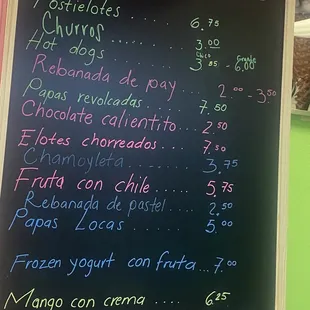 Tostielotes 6.75
Churros ........ 3.00
Hot dogs ....... Chico 3.85 - Grande 6.00
Rebanada de pay .... 2.00 - 3.50
Papas revolcadas ..... 7.50
Chocolate calientito .... 2.50
Elotes chorreados .... 7.50
Chamoyleta ........ 3.75
Fruta con chile ..... 5.75
Rebanada de pastel .... 2.50
Papas Locas ...... 5.00
Frozen yogurt con fruta ... 7.00
Mango con crema .... 6.25